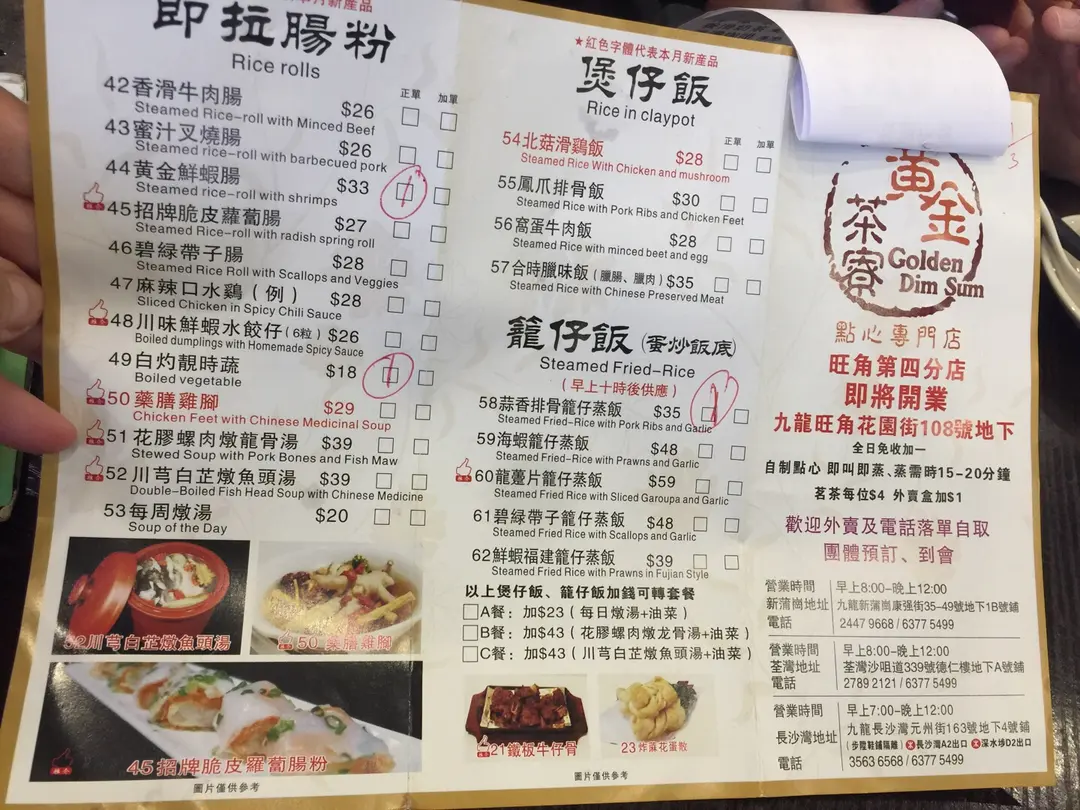 本月新產品
即拉腸粉
Rice rolls
正單 加單
42香滑牛肉腸 $26
Steamed Rice-roll with Minced Beef
43蜜汁叉燒腸 $26
Steamed rice-roll with barbecued pork
44黄金鮮蝦腸 $33
Steamed rice-roll with shrimps
45招牌脆皮蘿蔔腸 $27
Steamed Rice-roll with radish spring roll
46碧綠帶子腸 $28
Steamed Rice Roll with Scallops and Veggies
47麻辣口水鷄(例) $28
Sliced Chicken in Spicy Chili Sauce
48川味鮮蝦水餃仔(6粒) $26
Boiled dumplings with Homemade Spicy Sauce
49白灼靚時蔬 $18
Boiled vegetable
50藥膳雞腳 $29
Chicken Feet with Chinese Medicinal Soup
51花膠螺肉燉龍骨湯 $39
Stewed Soup with Pork Bones and Fish Maw
52川芎白芷燉魚頭湯 $39
Double-Boiled Fish Head Soup with Chinese Medicine
53每周燉湯 $20
Soup of the Day
52川芎白芷燉魚頭湯
50藥膳雞腳
45招牌脆皮蘿蔔腸粉
圖片僅供參考
★紅色字體代表本月新產品
煲仔飯
Rice in claypot
正單 加單
54北菇滑鷄飯 $28
Steamed Rice With Chicken and mushroom
55鳳爪排骨飯 $30
Steamed Rice with Pork Ribs and Chicken Feet
56窩蛋牛肉飯 $28
Steamed Rice with minced beef and egg
57合時臘味飯(臘腸、臘肉) $35
Steamed Rice with Chinese Preserved Meat
籠仔飯(蛋炒飯底)
Steamed Fried-Rice
(早上十時後供應)
58蒜香排骨籠仔蒸飯 $35
Steamed Fried-Rice with Pork Ribs and Garlic
59海蝦籠仔蒸飯 $48
Steamed Fried-Rice with Prawns and Garlic
60龍躉片籠仔蒸飯 $59
Steamed Fried Rice with Sliced Garoupa and Garlic
61碧綠帶子籠仔蒸飯 $48
Steamed Fried Rice with Scallops and Garlic
62鮮蝦福建籠仔蒸飯 $39
Steamed Fried Rice with Prawns in Fujian Style
以上煲仔飯、籠仔飯加錢可轉套餐
A餐:加$23(每日燉湯+油菜)
B餐:加$43(花膠螺肉燉龙骨湯+油菜)
C餐:加$43(川芎白芷燉魚頭湯+油菜)
21鐵板牛仔骨
23炸蔴花蛋散
圖片僅供參考
黄金茶寮
Golden
Dim Sum
點心專門店
旺角第四分店
即將開業
九龍旺角花園街108號地下
全日免收加一
自制點心 即叫即蒸、蒸需時15-20分鐘
茗茶每位$4 外賣盒加$1
歡迎外賣及電話落單自取
團體預訂、到會
營業時間 早上8:00-晚上12:00
新蒲崗地址 九龍新蒲崗康强街35-49號地下1B號鋪
電話 2447 9668 / 6377 5499
營業時間 早上8:00-晚上12:00
荃灣地址 荃灣沙咀道339號德仁樓地下A號鋪
電話 2789 2121 / 6377 5499
營業時間 早上7:00-晚上12:00
長沙灣地址 九龍長沙灣元州街163號地下4號鋪
(步陞鞋鋪隔離) 長沙灣A2出口 深水埗D2出口
電話 3563 6568 / 6377 5499